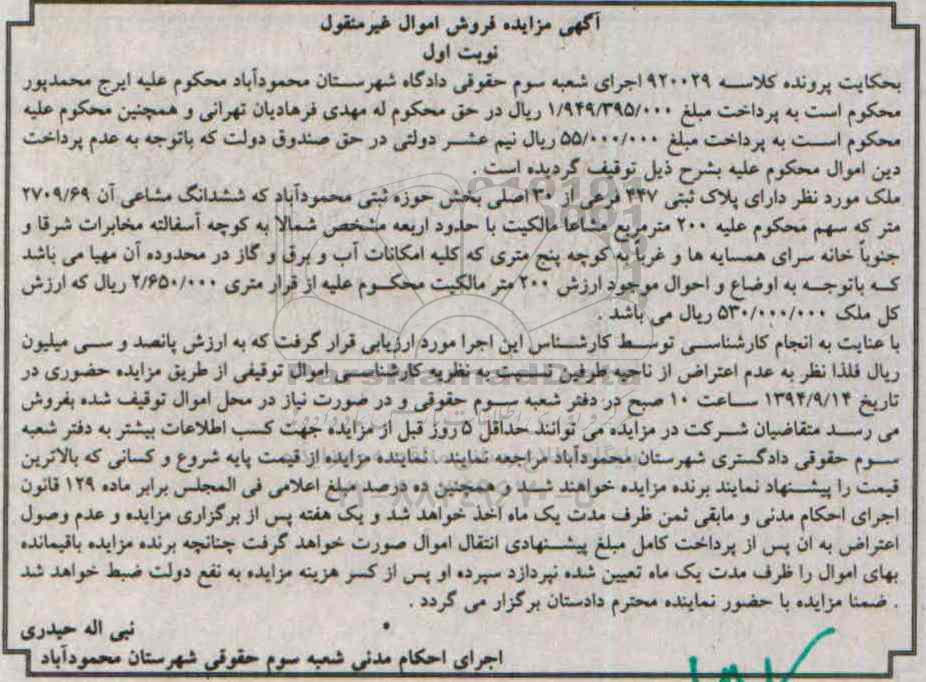 آگهی مزایده فروش اموال غیرمنقول
نوبت اول
بحکایت پرونده کلاسه ۹۲۰۰۲۹ اجرای شعبه سوم حقوقی دادگاه شهرستان محمودآباد محکوم علیه ایرج محمدپور
محکوم است به پرداخت مبلغ ۱/۹۴۹/۳۹۵/۰۰۰ ریال در حق محکوم له مهدی فرهادیان تهرانی و همچنین محکوم علیه
محکوم است به پرداخت مبلغ ۵۵/۰۰۰/۰۰۰ ریال نیم عشر دولتی در حق صندوق دولت که باتوجه به عدم پرداخت
دین اموال محکوم علیه بشرح ذیل توقیف گردیده است .
ملک مورد نظر دارای پلاک ثبتی ۴۴۷ فرعی از ۳۰ اصلی بخش حوزه ثبتی محمودآباد که ششدانگ مشاعی آن ۲۷۰۹/۶۹
متر که سهم محکوم علیه ۲۰۰ مترمربع مشاعا مالکیت با حدود اربعه مشخص شمالا به کوچه آسفالته مخابرات شرقا و
جنوباً خانه سرای همسایه ها و غرباً به کوچه پنج متری که کلیه امکانات آب و برق و گاز در محدوده آن مهیا می باشد
که باتوجه به اوضاع و احوال موجود ارزش ۲۰۰ متر مالکیت محکوم علیه از قرار متری ۲/۶۵۰/۰۰۰ ریال که ارزش
کل ملک ۵۳۰/۰۰۰/۰۰۰ ریال می باشد .
با عنایت به انجام کارشناسی توسط کارشناس این اجرا مورد ارزیابی قرار گرفت که به ارزش پانصد و سی میلیون
ریال فلذا نظر به عدم اعتراض از ناحیه طرفین نسبت به نظریه کارشناسی اموال توقیفی از طریق مزایده حضوری در
تاریخ ۱۳۹۴/۹/۱۴ ساعت ۱۰ صبح در دفتر شعبه سوم حقوقی و در صورت نیاز در محل اموال توقیف شده بفروش
می رسد متقاضیان شرکت در مزایده می توانند حداقل ۵ روز قبل از مزایده جهت کسب اطلاعات بیشتر به دفتر شعبه
سوم حقوقی دادگستری شهرستان محمودآباد مراجعه نمایند . نماینده مزایده از قیمت پایه شروع و کسانی که بالاترین
قیمت را پیشنهاد نمایند برنده مزایده خواهند شد و همچنین ده درصد مبلغ اعلامی فی المجلس برابر ماده ۱۲۹ قانون
اجرای احکام مدنی و مابقی ثمن ظرف مدت یک ماه اخذ خواهد شد و یک هفته پس از برگزاری مزایده و عدم وصول
اعتراض به ان پس از پرداخت کامل مبلغ پیشنهادی انتقال اموال صورت خواهد گرفت چنانچه برنده مزایده باقیمانده
بهای اموال را ظرف مدت یک ماه تعیین شده نپردازد سپرده او پس از کسر هزینه مزایده به نفع دولت ضبط خواهد شد
. ضمنا مزایده با حضور نماینده محترم دادستان برگزار می گردد .
نبی اله حیدری
اجرای احکام مدنی شعبه سوم حقوقی شهرستان محمودآباد
ParsNamadData